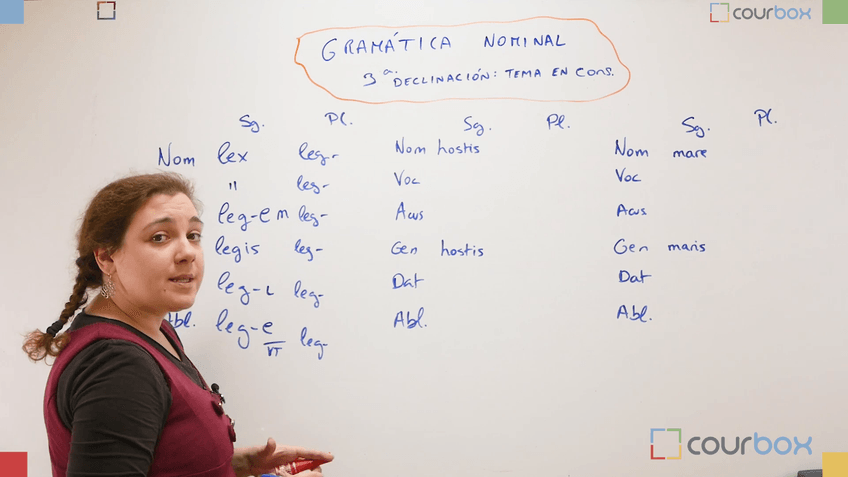 courbox
GRAMÁTICA NOMINAL
3ª DECLINACIÓN: TEMA EN CONS.
Sg. Pl. Sg. Pl. Sg. Pl.
Nom lex leg- Nom hostis Nom mare
" leg- Voc Voc
leg-em leg- Acus Acus
legis leg- Gen hostis Gen maris
leg-i leg- Dat Dat
Abl. leg-e leg- Abl. Abl.
VT
courbox